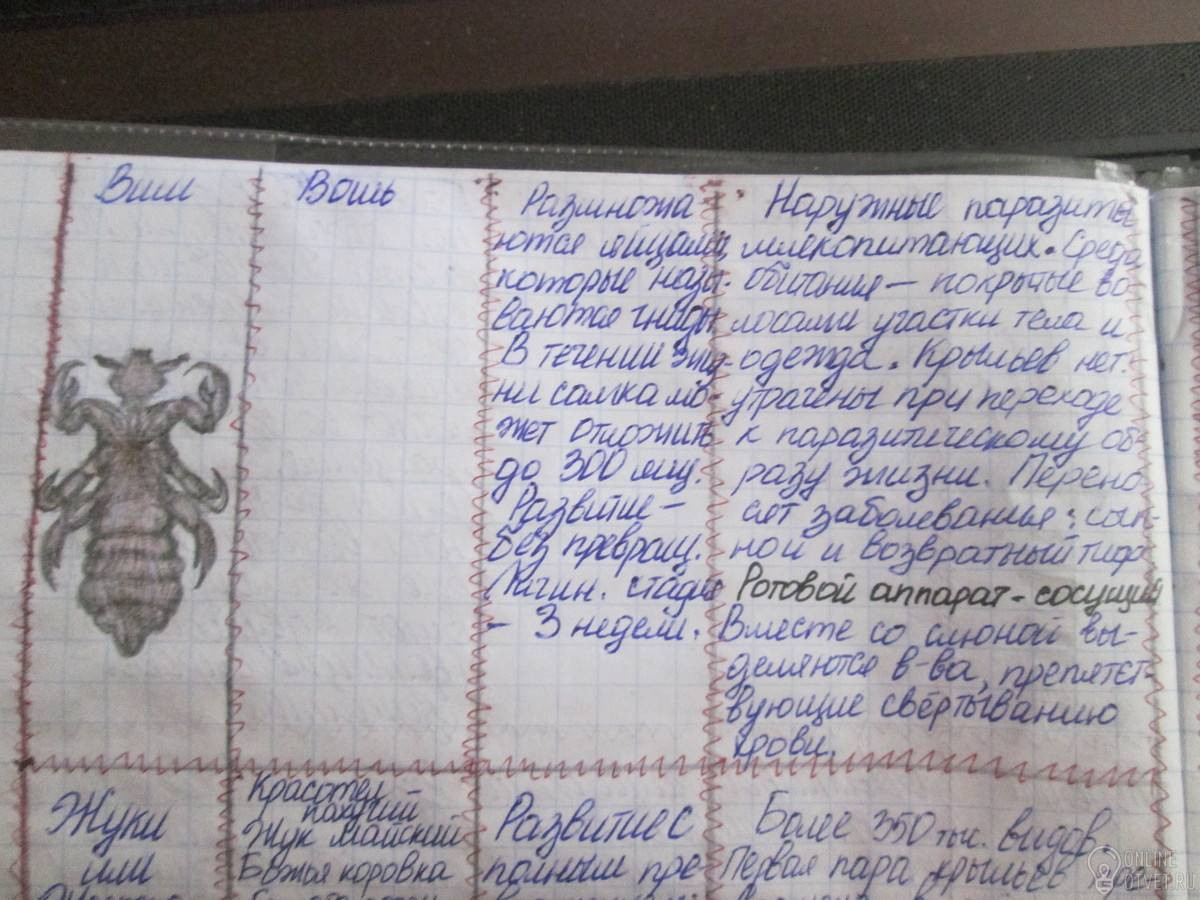 Вши
Вошь
Размножа
ются яйцами,
которые назы-
ваются гниды
В течении жиз-
ни самка мо-
жет отложить
до 300 яиц.
Развитие –
без превращ.
Личин. стадия
– 3 недели.
Наружные паразиты
млекопитающих. Среда
обитания – покрытые во
лосами участки тела и
одежда. Крыльев нет.
утрачены при переходе
к паразитическому об-
разу жизни. Перено
сят заболевания: сып-
ной и возвратный тиф
Ротовой аппарат - сосущий
Вместе со слюной вы-
деляются в-ва, препятст-
вующие свёртыванию
крови.
Жуки
или
Красотел
пахучий
Жук майский
Божья коровка
Развитие с
полным пре-
Более 350 тыс. видов.
Первая пара крыльев
ONLINE
OTVET.RU